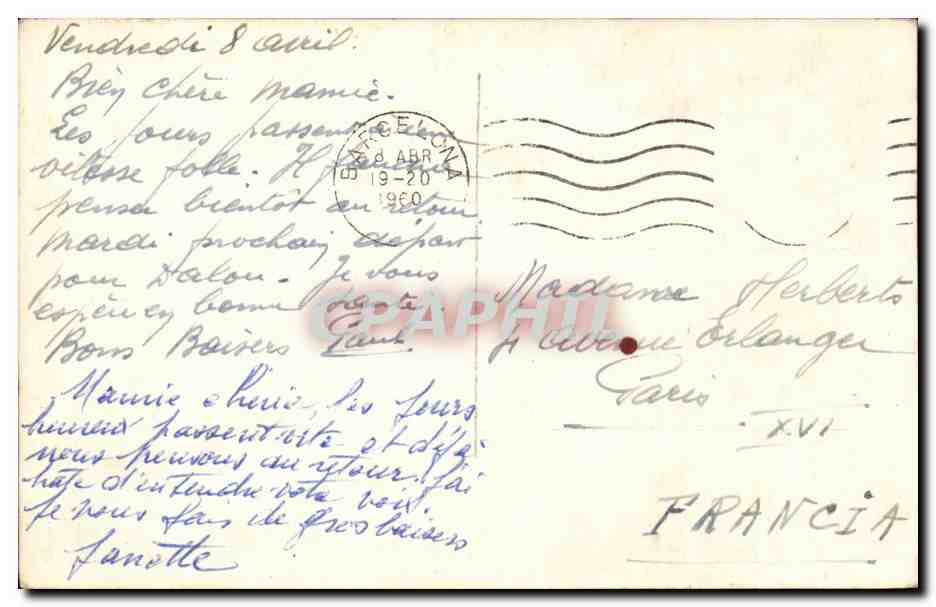 Vendredi 8 avril.
Bien chère mamie.
Les jours passent à une
vitesse folle. Il faudra
penser bientôt au retour
mardi prochain départ
pour Dalou. Je vous
espère en bonne santé.
Bons Baisers
Mamie chérie, les jours
heureux passent vite et déjà
nous pensons au retour. J'ai
hâte d'entendre votre voix.
Je vous fais de gros baisers
BARCELONA
8 ABR
19-20
1960
CPAPHIL
Madame Herberts
4 avenue Erlanger
Paris
XVI
FRANCIA